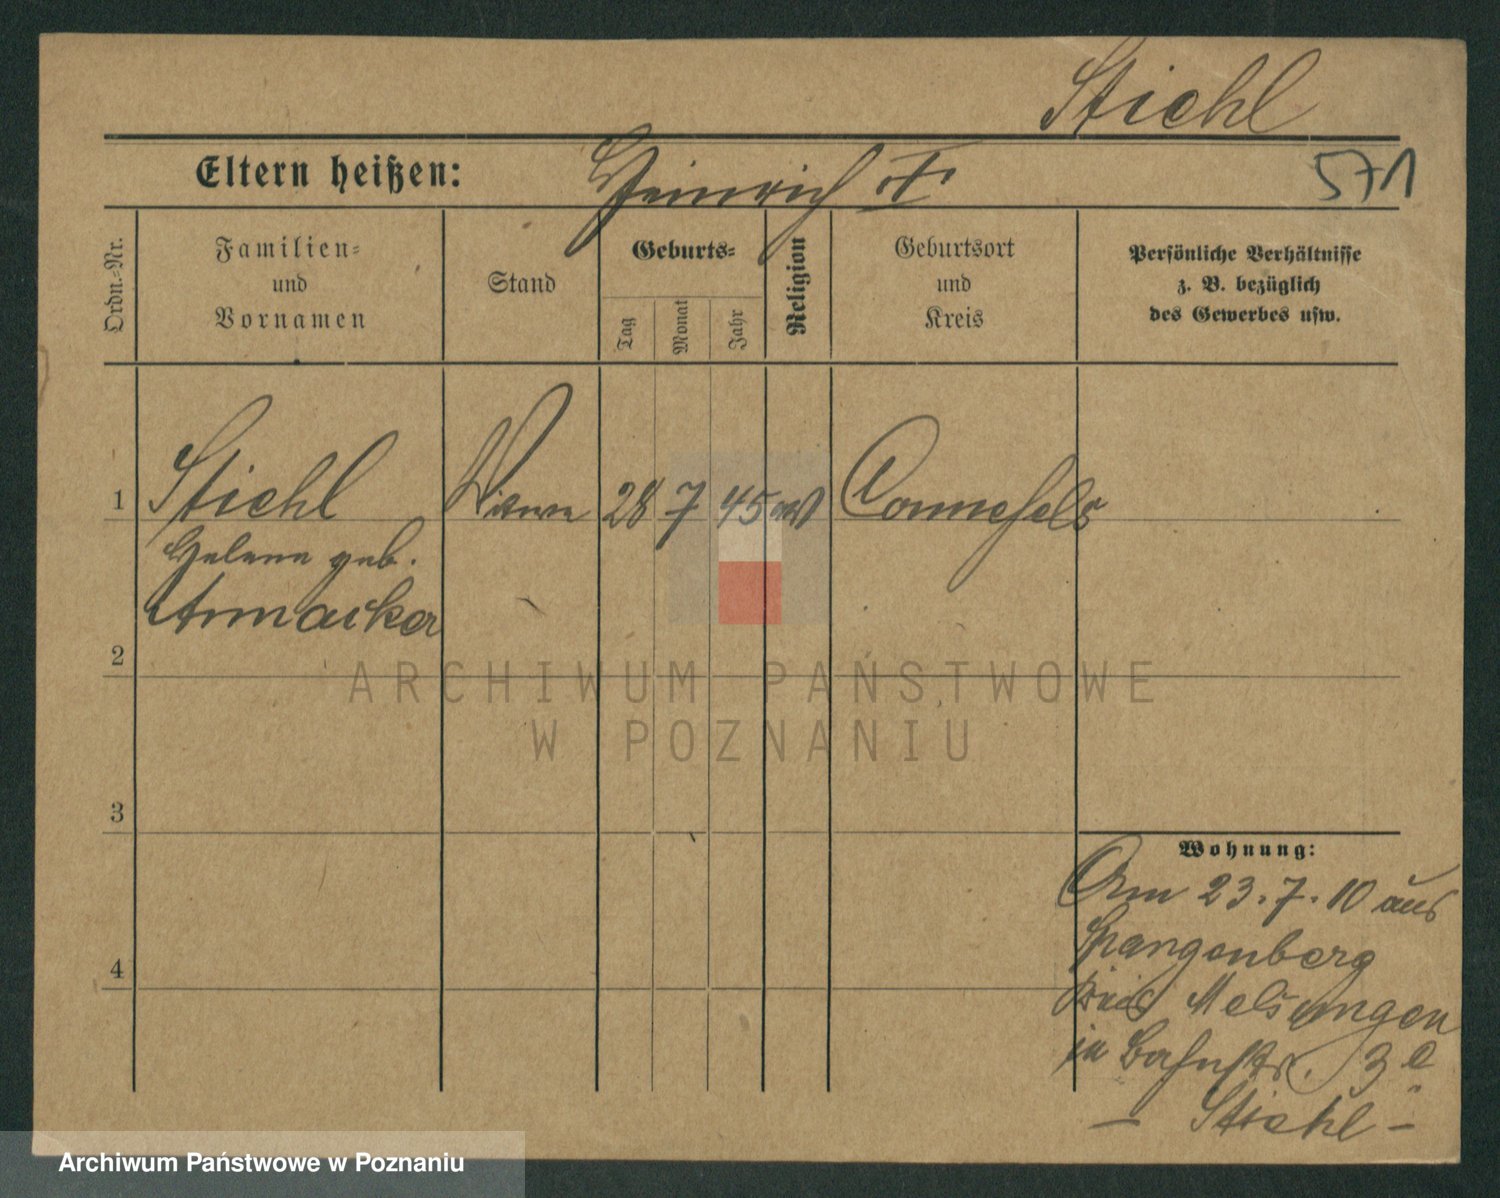 Stiehl
Eltern heißen: Heinrich
571
Ordn.-Nr.
Familien-
und
Vornamen
Stand
Geburts-
Tag
Monat
Jahr
Religion
Geburtsort
und
Kreis
Persönliche Verhältnisse
z. B. bezüglich
des Gewerbes usw.
1 Stiehl Witwe 28 7 45 Connefels
Helene geb.
2
ARCHIWUM PAŃSTWOWE
W POZNANIU
3
Wohnung:
Am 23.7.10 aus
Spangenberg
4
Kreis Melsungen
in Bahnstr. 3
– Stiehl –
Archiwum Państwowe w Poznaniu